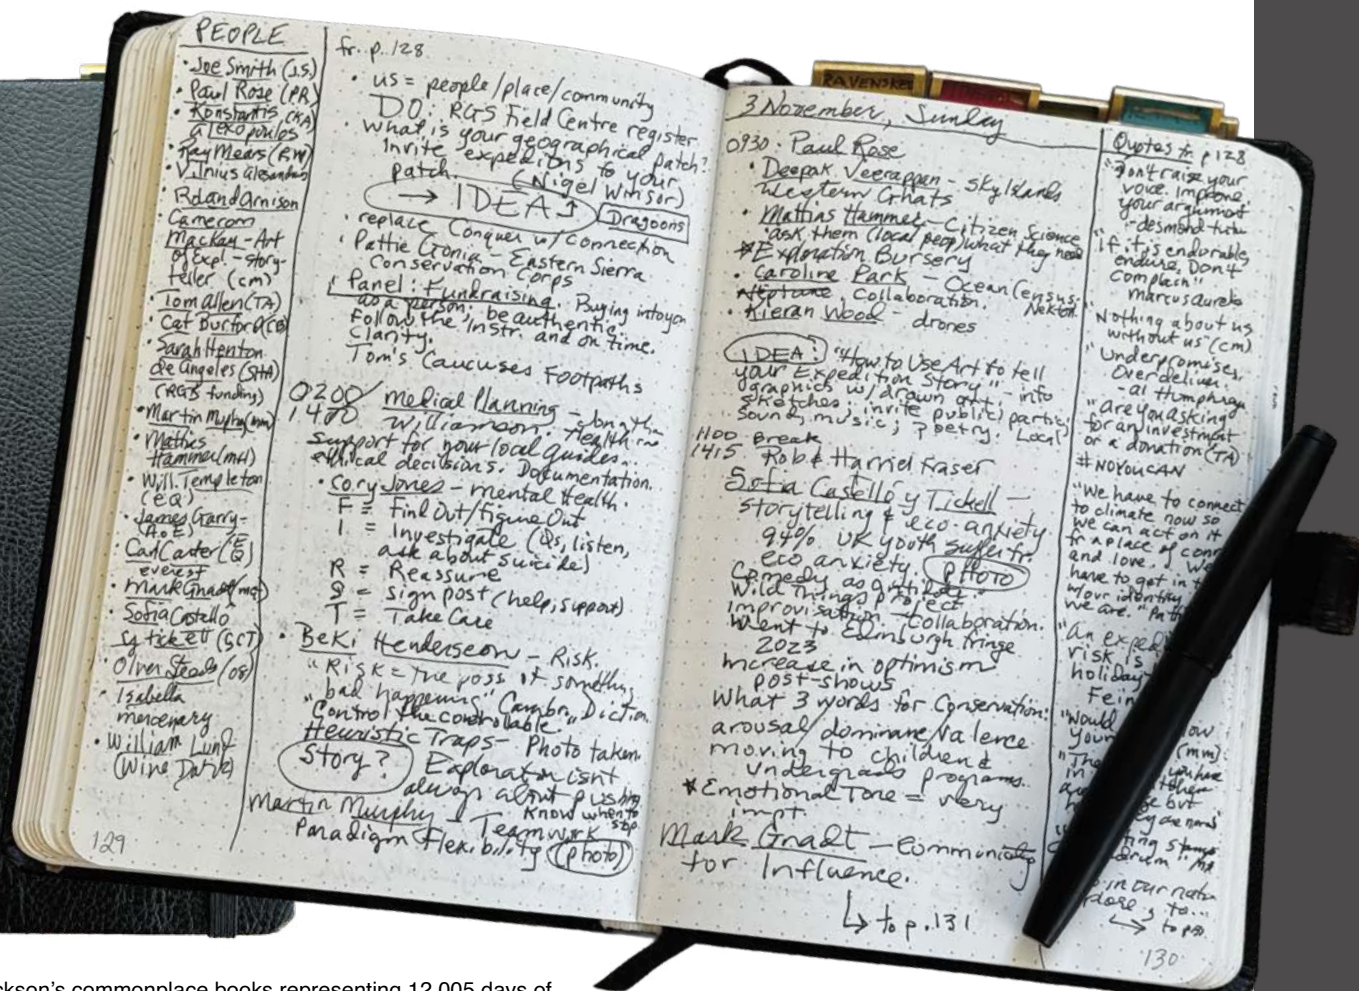 PEOPLE
• Joe Smith (J.S.)
• Paul Rose (PR)
• Konstantis (KA)
alexopoulos
• Ray Mears (RM)
• Vilnius
• Roland Arnison
• Cameron
Mackay - Art
of Expl. - story-
teller (cm)
• Tom Allen (TA)
• Cat Burford (CB)
• Sarah Henton
de Angeles (SHA)
(RGS funding)
• Martin Murphy (mm)
• Mathis
Hammer (MH)
• Will Templeton
(EQ)
• James Garry-
• Carl Carter
everest
• Mark Gnadt (mg)
• Sofia Costello
y tickell (SCT)
• Oliver Steeds (os)
• Isabella
mercenary
• William Lunt
129
fr. p. 128
• us = people/place/community
DO: RGS Field Centre register
• What is your geographical patch?
Invite expeditions to your
patch. (Nigel Winser)
→ IDEA
Dragoons
• replace Conquer w/ connection
• Pattie Gonia - Eastern Sierra
Conservation Corps
Panel: Fundraising. Buying into you
as a person, be authentic.
Follow the instr. and on time.
Clarity.
Tom's Caucuses Footpaths
0200/
1400
medical Planning - Jonathan
Williamson. Health
support for your local guides..
ethical decisions. Documentation.
• Cory Jones - mental Health.
F = Find Out/figure Out
I = Investigate (Qs, listen,
ask about suicide)
R = Reassure
S = sign post (help, support)
T = Take Care
• BeKi Henderson - Risk.
"Risk = the poss of something
bad happening" Cambr. Diction.
"Control the controllable"
Heuristic Traps - Photo taken.
Story?
Exploration isn't
always about pushing
Know when to stop
Martin Murphy - Teamwork
Paradigm Flexibility (photo)
RAVENSKEE
3 November, Sunday
0930. Paul Rose
• Deepak Veerappan - sky Islands
Western Ghats
• Mathias Hammer - Citizen Science
"ask them (local peop) what they need
* Exploration Bursery
• Caroline Park - Ocean Census.
Neptune, collaboration. Nekton.
• Kieran Wood - drones
IDEA: "How to Use Art to tell
your Expedition Story" - info
graphics w/ drawn art,
sketches, invite public partici
sound, music; poetry. Local
1100 - Break
1415. Rob & Harriet Fraser
Sofia Castelló y Tickell -
storytelling & eco-anxiety
94% UK youth suffer fr.
eco anxiety. (Photo)
Comedy as antidote
Wild Things project
improvisation - collaboration.
Went to Edinburgh fringe
2023
increase in optimism
post-shows
What 3 words for Conservation?
arousal/dominance/valence
moving to children &
undergrads programs..
* Emotional Tone = very
impt.
Mark Gnadt - Communicating
for Influence.
↳ to p. 131
Quotes fr. p 128
"Don't raise your
voice. Improve
your argument
- desmond tutu
"If it's endurable,
endure, Don't
complain"
Marcus aurelio
"Nothing about us
without us" (cm)
"Underpromise,
Overdeliver.
- al Humphreys
"are you asking
for an investment
or a donation (TA)
# NOYOUCAN
"We have to connect
to climate now so
we can act on it
fr a place of
and love. We
have to get in
Your identity
we are."
"An
risk is
holiday
"Would
your
(mm)
"The you have
in
but
they are
in our
to...
130
commonplace books representing 12,005 days of